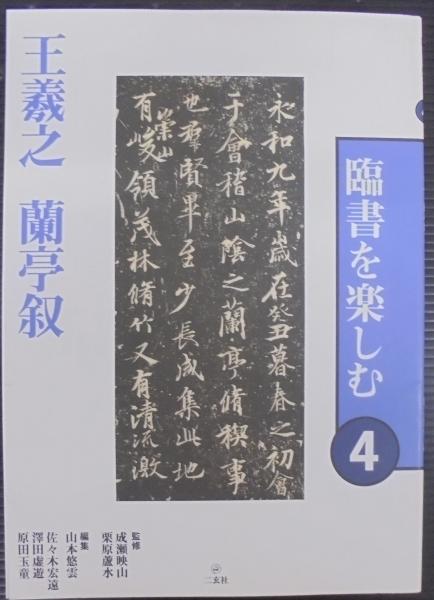 臨書を楽しむ
4
永和九年歳在癸丑暮春之初會
于會稽山陰之蘭亭脩稧事
也羣賢畢至少長咸集此地
有崇山峻領茂林脩竹又有清流激
王羲之 蘭亭叙
監修
成瀬映山
栗原蘆水
編集
山本悠雲
佐々木宏遠
澤田虚遊
原田玉童
二玄社